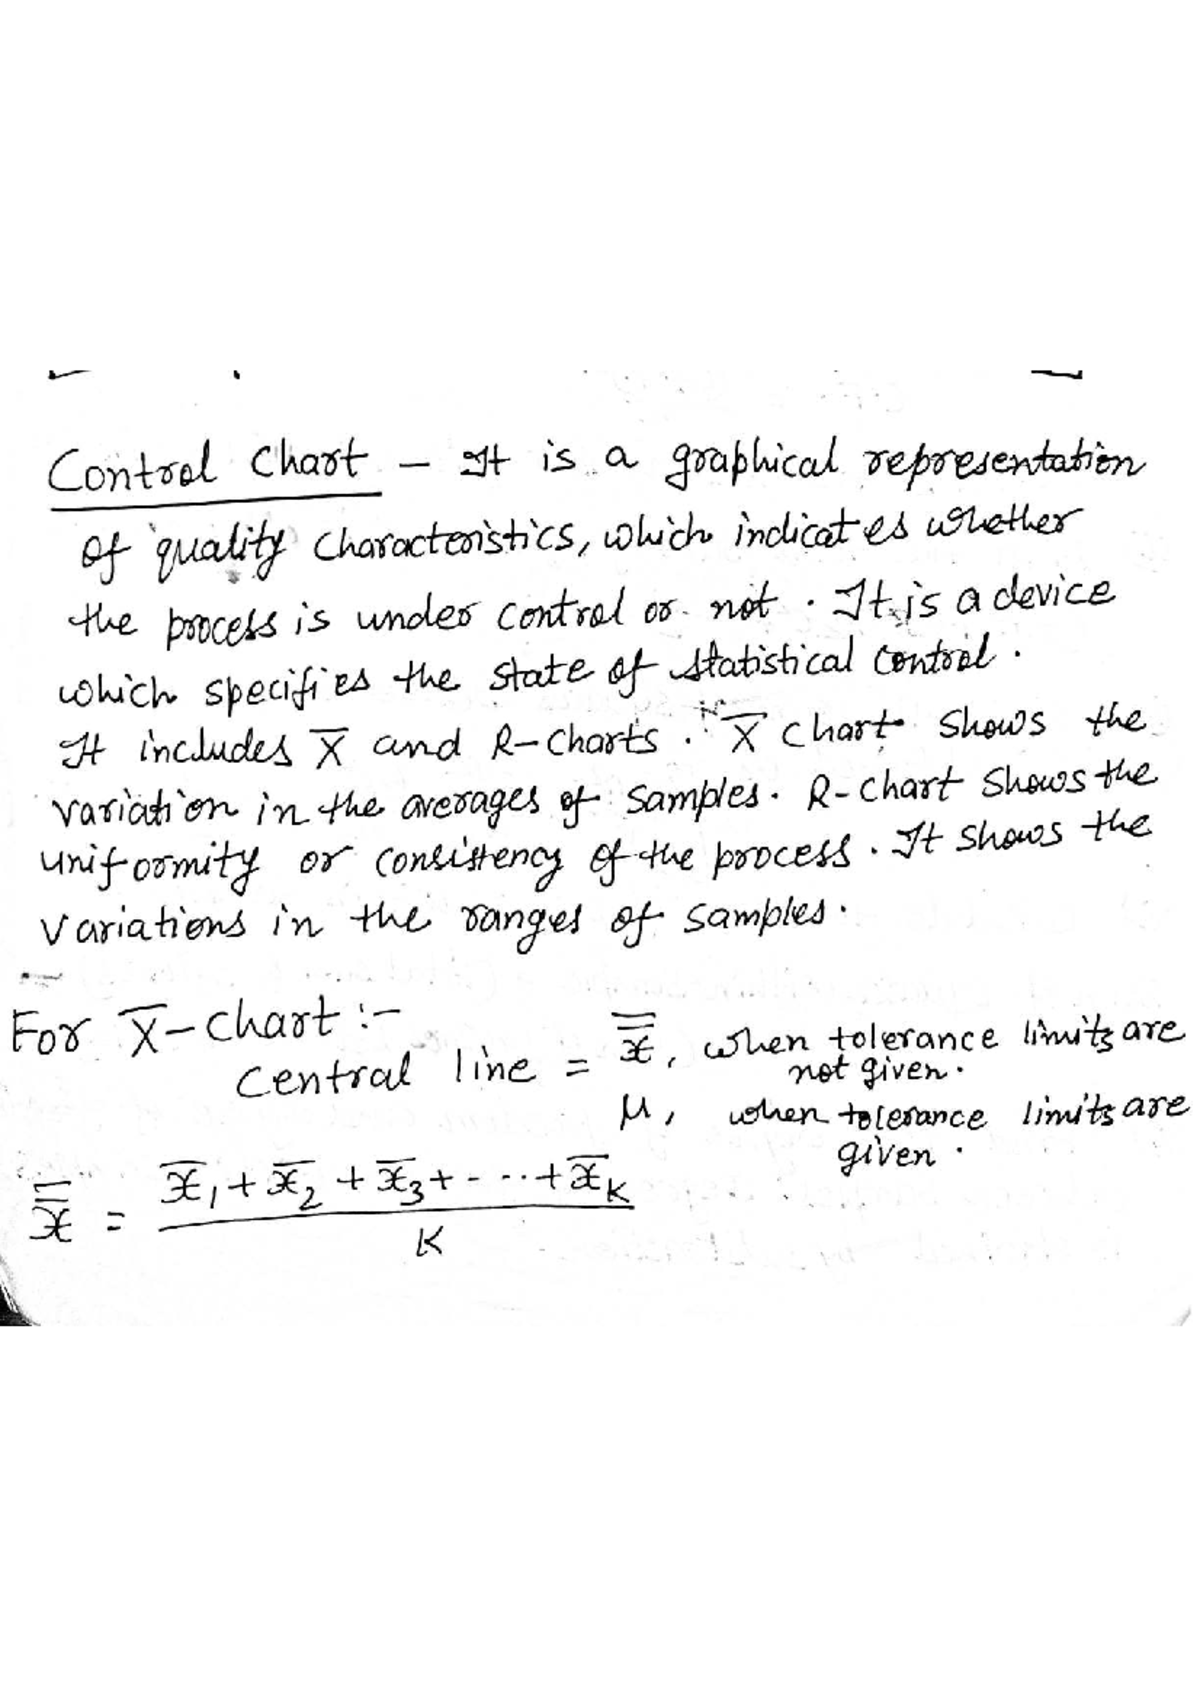 Control Chart – It is a graphical representation
of quality characteristics, which indicates whether
the process is under control or not. It is a device
which specifies the state of statistical control.
It includes X̅ and R-Charts. X̅ chart shows the
variation in the averages of samples. R-chart shows the
uniformity or consistency of the process. It shows the
variations in the ranges of samples.
For X̅-chart :-
Central line = x̿, when tolerance limits are
not given.
μ, when tolerance limits are
given.
x̿ = (x̅₁ + x̅₂ + x̅₃ + - ... + x̅ₖ) / K